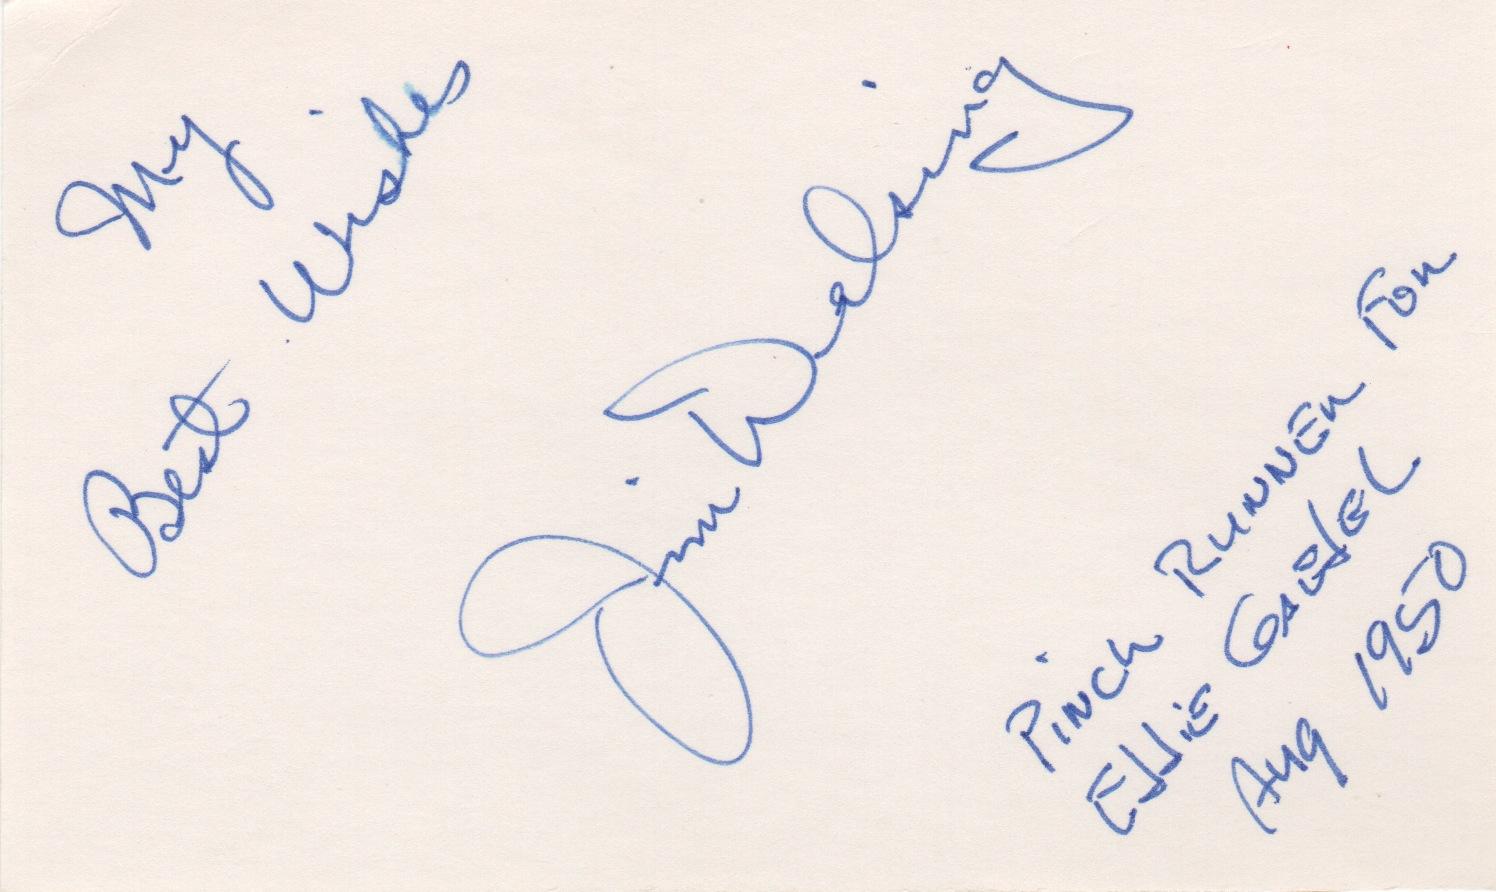 My
Best Wishes
Jim Delsing
PINCH RUNNER FOR
EDDIE GAEDEL
Aug 1950